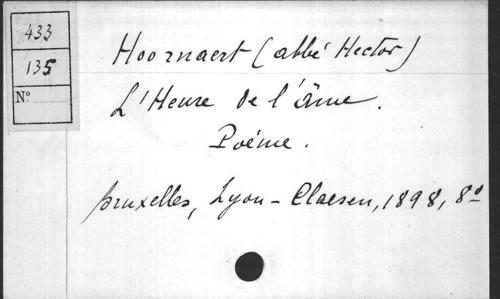 433
135
N°
Hoornaert (abbé Hector)
L'Heure de l'âme.
Poéme.
bruxelles, Lyon-Claesen, 1898, 8°